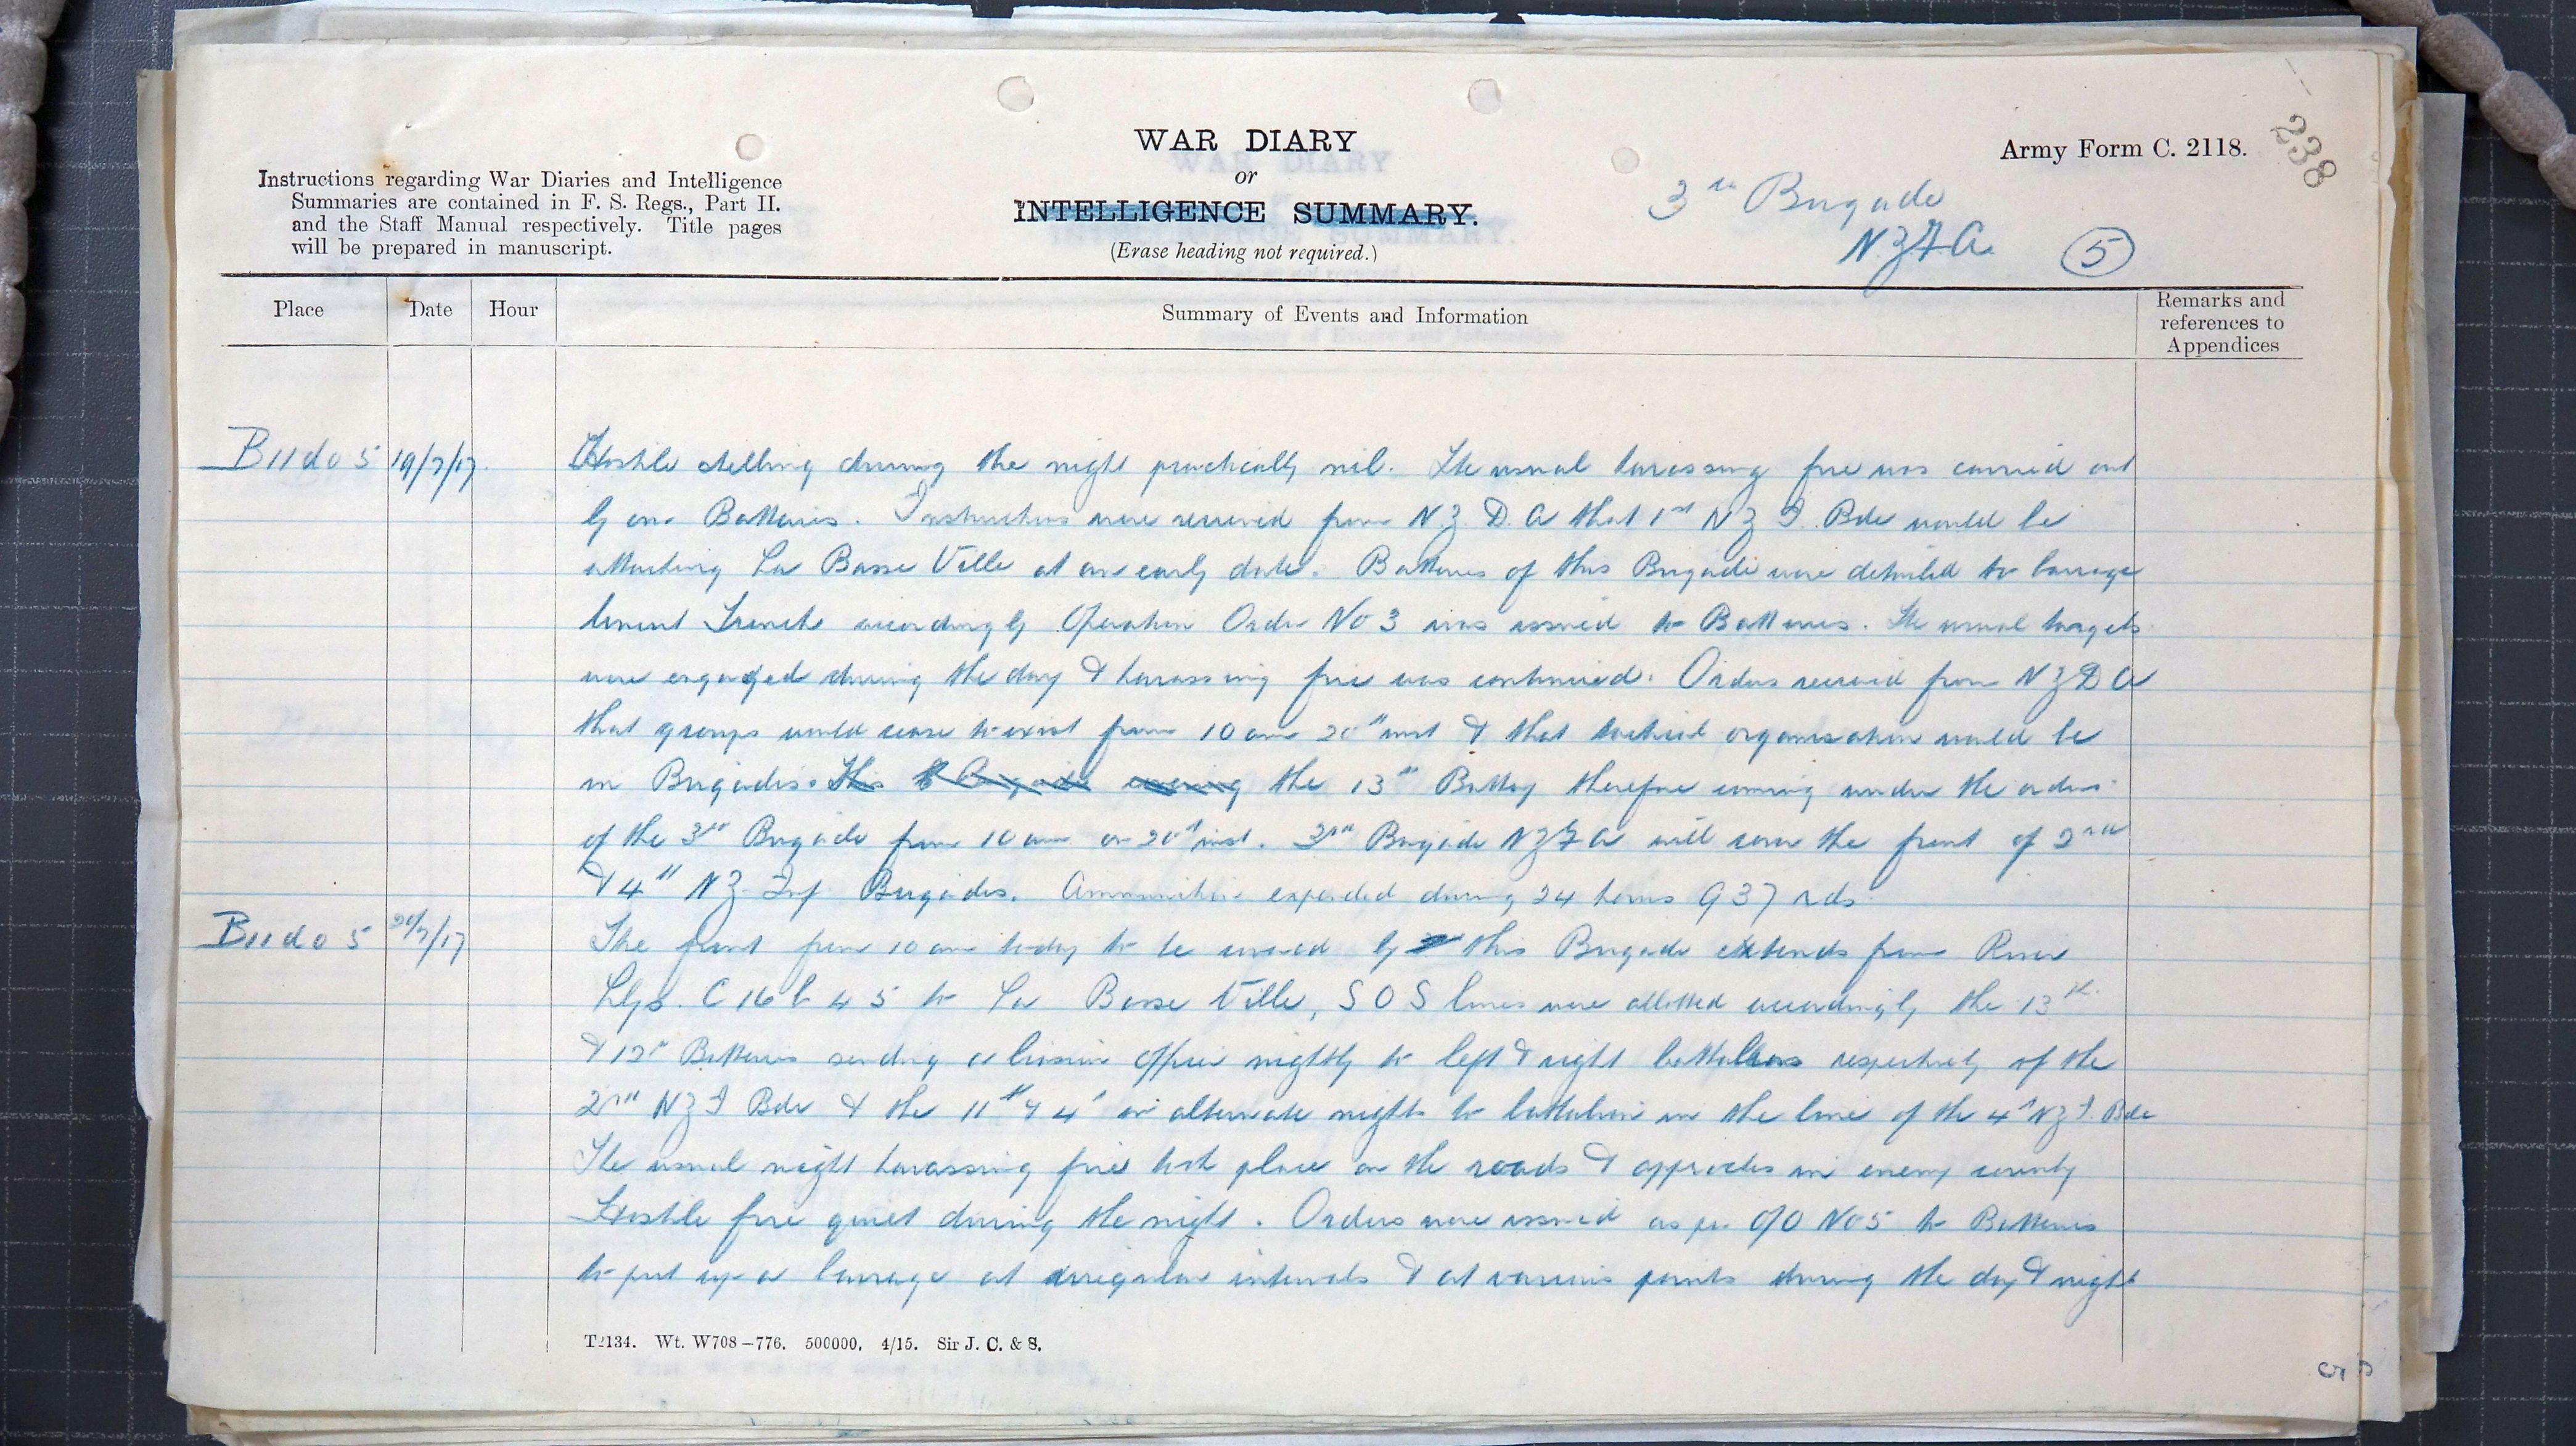 238
WAR DIARY
or
INTELLIGENCE SUMMARY.
(Erase heading not required.)
Army Form C. 2118.
Instructions regarding War Diaries and Intelligence
Summaries are contained in F. S. Regs., Part II.
and the Staff Manual respectively. Title pages
will be prepared in manuscript.
3rd Brigade
N.Z.F.A.
5
Place Date Hour Summary of Events and Information Remarks and references to Appendices
B11d05 19/7/17. Hostile shelling during the night practically nil. The usual harassing fire was carried out
by our Batteries. Instructions were received from N.Z.D.A that 1st N Z I. Bde would be
attacking La Basse Ville at an early date. Batteries of this Brigade were detailed to barrage
Trench accordingly Operation Order No 3 was issued to Batteries. The usual targets
were engaged during the day & harassing fire was continued. Orders received from N Z D A
that groups would cease to exist from 10 am 20th inst & that tactical organisation would be
in Brigades. This Brigade the 13th Battery therefore coming under the orders
of the 3rd Brigade from 10 am on 20th inst. 3rd Brigade N Z F A will cover the front of 2nd
& 4th N Z. Inf Brigades. Ammunition expended during 24 hours 937 rds
B11d05 20/7/17 The front from 10 am today to be covered by this Brigade extends from River
Lys. C 16 b 4 5 to La Basse Ville, S O S lines were allotted accordingly the 13th.
& 12th Batteries sending a liaison officer nightly to left & right battalions respectively of the
2nd N Z I Bde & the 11th & 4th on alternate nights to battalion in the line of the 4th N Z I. Bde
The usual night harassing fire took place on the roads & approaches in enemy country
Hostile fire quiet during the night. Orders were issued as per O/O No 5 to Batteries
to put up a barrage at irregular intervals & at various points during the day & night
T2134. Wt. W708—776. 500000. 4/15. Sir J. C. & S.